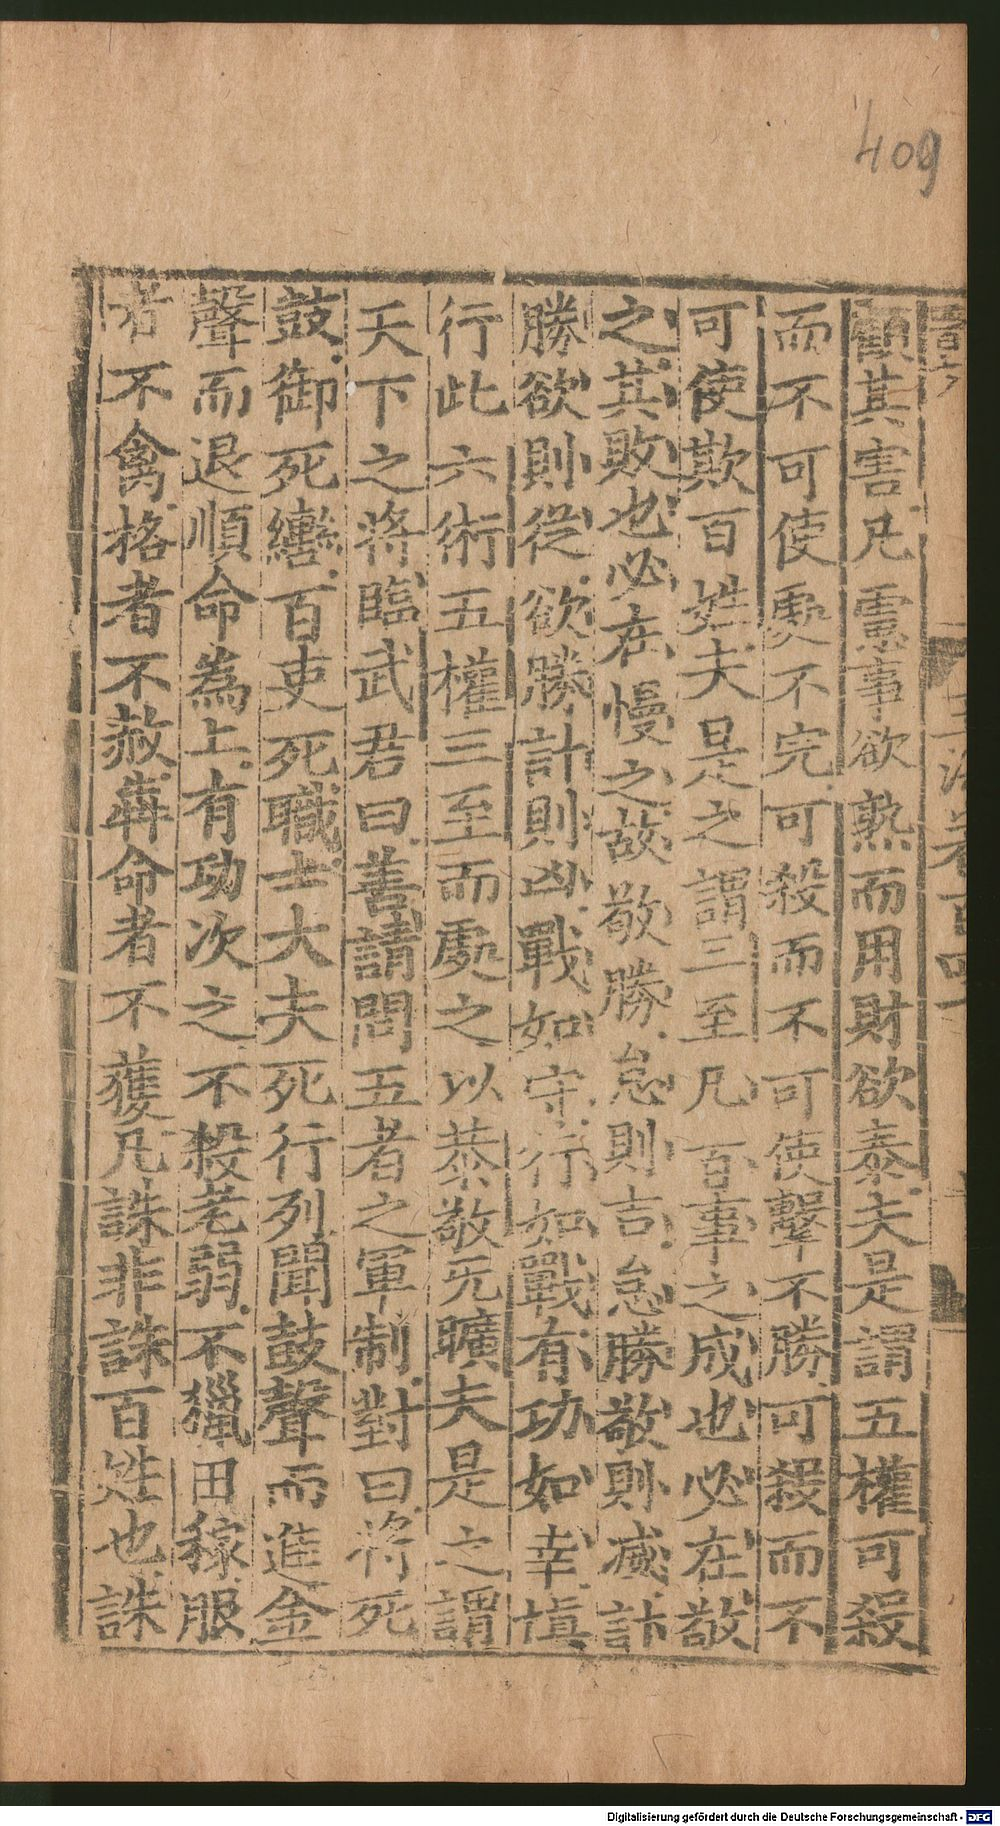 409
顧其害凡慮事欲熟而用財欲泰夫是謂五權可殺
而不可使處不完可殺而不可使擊不勝可殺而不
可使欺百姓夫是之謂三至凡百事之成也必在敬
之其敗也必在慢之故敬勝怠則吉怠勝敬則滅計
勝欲則從欲勝計則凶戰如守行如戰有功如幸慎
行此六術五權三至而處之以恭敬无曠夫是之謂
天下之將臨武君曰善請問五者之軍制對曰將死
鼓御死轡百吏死職士大夫死行列聞鼓聲而進金
聲而退順命為上有功次之不殺老弱不獵田稼服
者不禽格者不赦犇命者不獲凡誅非誅百姓也誅
Digitalisierung gefördert durch die Deutsche Forschungsgemeinschaft - DFG